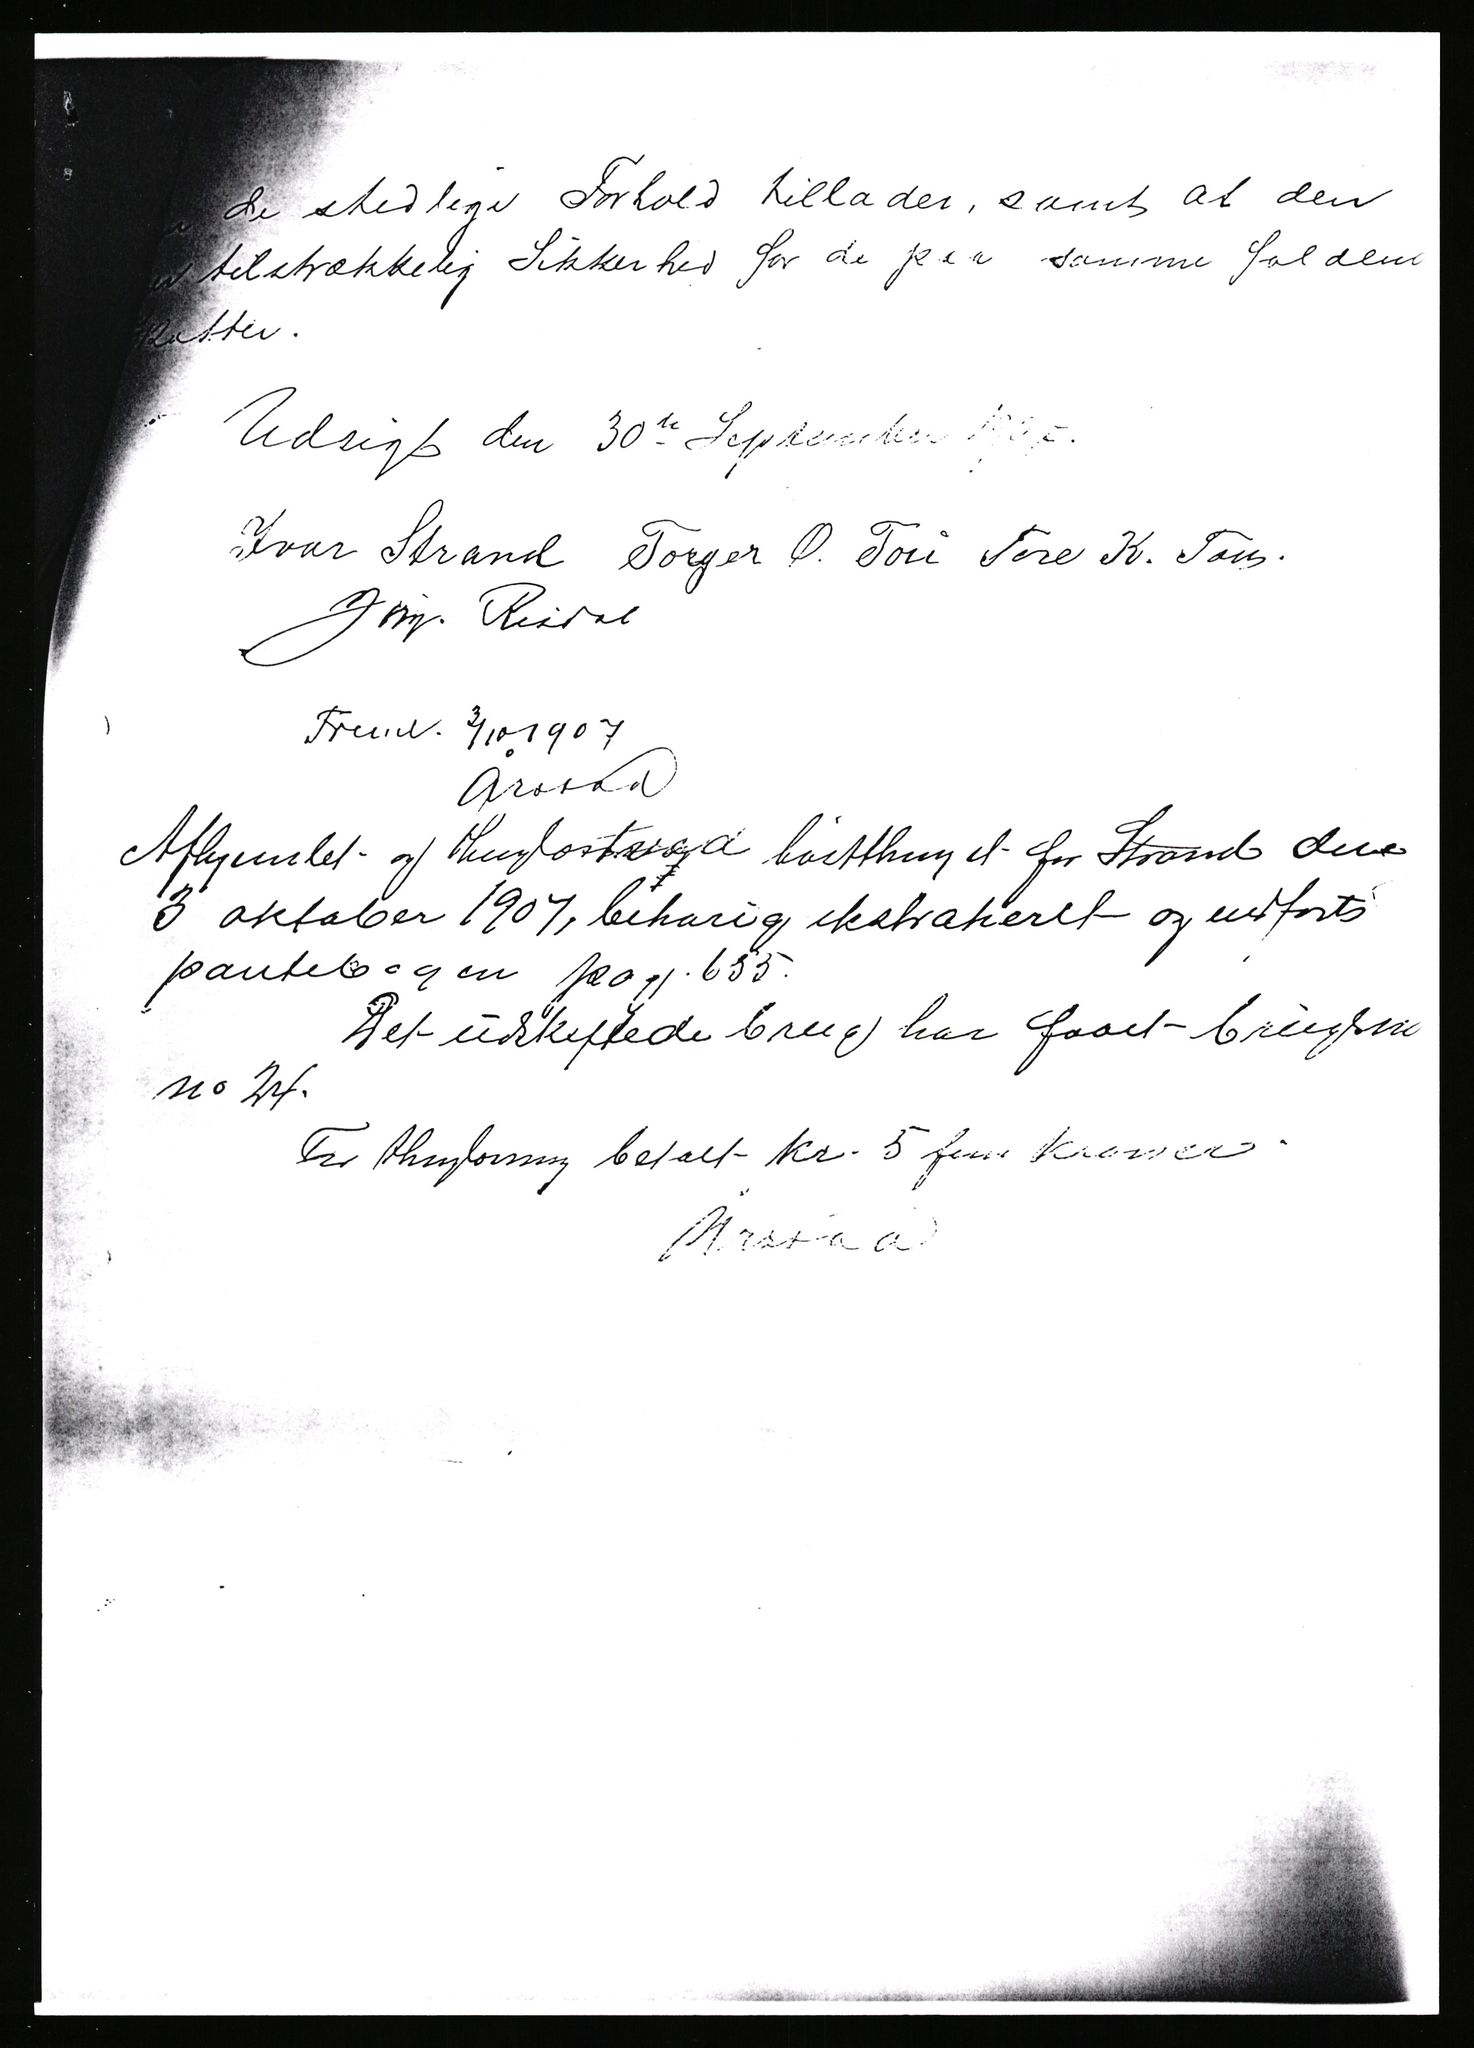 de stedlige Forhold tillader, samt at den
tilstrækkelig Sikkerhed for de paa samme faldene
Skatter.
Udsigt den 30te September
Ivar Strand Torger O. Tou Tore K. Tou.
Risdal
Freml. 3/10 1907
Årstad
Aflyeuslet og thinglæst ved høstthinget for Strand den
3 oktober 1907, behørig ekstraheret og indført i
panteb-gen pag. 655.
Det udskiftede brug har faaet brugsm
no 24.
For thinglysning betalt kr. 5 fem kroner.
Årstad